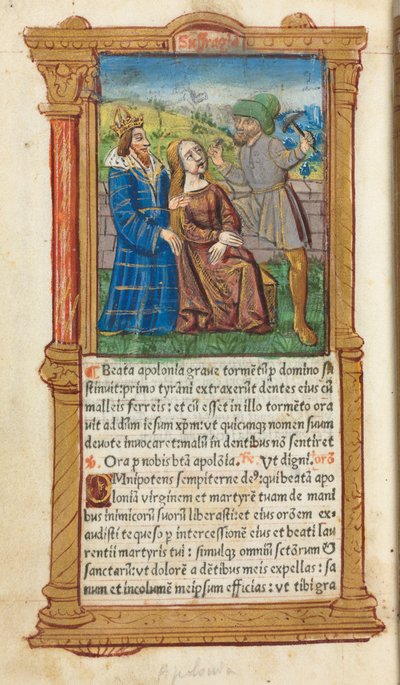 Suffragia
¶ Beata apolonia graue tormētū p domino su
stinuit: primo tyrāni extraxerūt dentes eius cū
malleis ferreis: et cū esset in illo tormēto ora
uit ad dūm iesum xp̄m: vt quicunqz nomen suum
deuote inuocaret: malū in dentibus nō sentiret
℣. Ora p nobis btā apolōia. ℟. Vt digni. orō
OMnipotens sempiterne de⁹: qui beatā apo
loniā virginem et martyrē tuam de mani
bus inimicorū suorū liberasti: et eius orōem ex-
audisti te queso p intercessionē eius et beati lau
rentii martyris tui: simulqz omniū sctōrum &
sanctarū: vt dolorē a dētibus meis expellas: sa
num et incolumē meipsum efficias: vt tibi gra
Apolonia